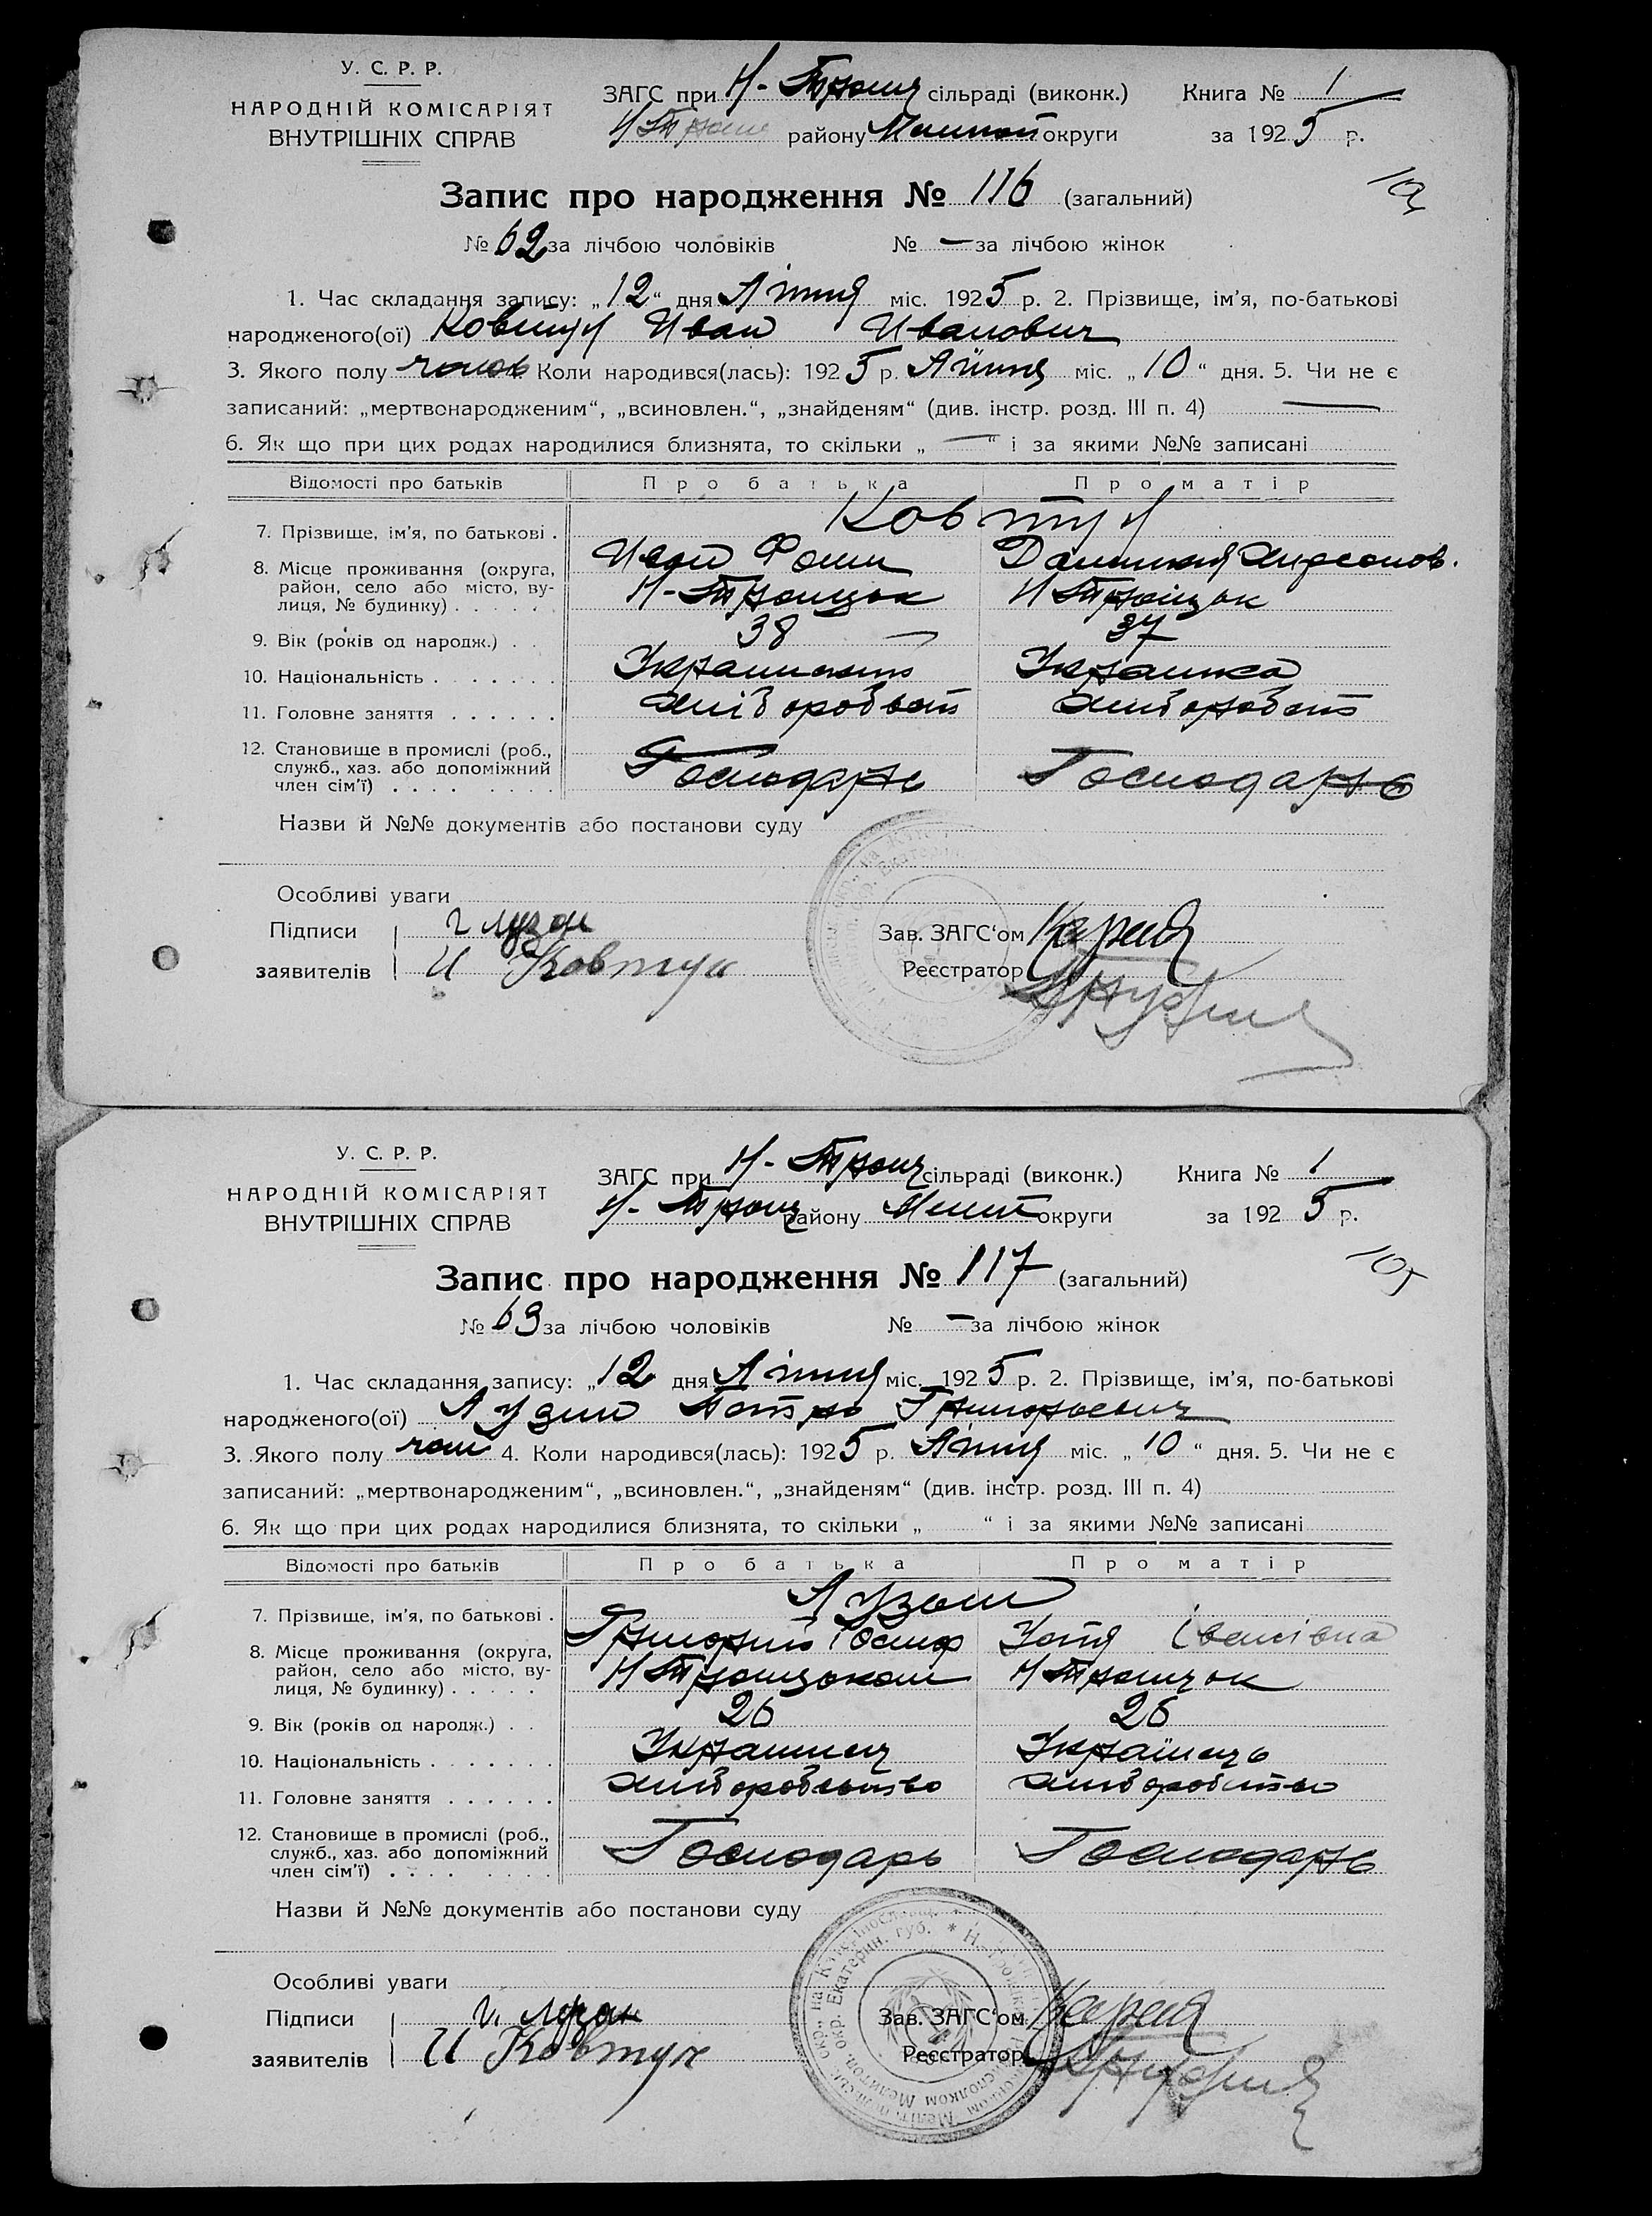 У. С. Р. Р.
НАРОДНІЙ КОМІСАРІЯТ
ВНУТРІШНІХ СПРАВ
ЗАГС при Н-Троиц сільраді (виконк.) Книга № 1
Н Трои району округи за 1925 р.
Запис про народження № 116 (загальний)
№ 62 за лічбою чоловіків № — за лічбою жінок
1. Час складання запису: „12“ дня Липня міс. 1925 р. 2. Прізвище, ім’я, по-батькові
народженого(ої) Ковтун Иван Иванович
3. Якого полу чолов Коли народився(лась): 1925 р. Липня міс. „10“ дня. 5. Чи не є
записаний: „мертвонародженим“, „всиновлен.“, „знайденям“ (див. інстр. розд. III п. 4) —
6. Як що при цих родах народилися близнята, то скільки „—“ і за якими №№ записані
Відомості про батьків Про батька Про матір
Ковтун
7. Прізвище, ім’я, по батькові .
Иван Фоми
8. Місце проживання (округа,
район, село або місто, ву-
лиця, № будинку) . . . . .
Н-Троицьк Н Троіцьк
9. Вік (років од народж.) . . 38 37
10. Національність . . . . . . . Украинка
11. Головне заняття . . . . . .
12. Становище в промислі (роб.,
служб., хаз. або допоміжний
член сім’ї) . . . . . . . .
Господарь Господарь
Назви й №№ документів або постанови суду
Особливі уваги
Підписи Г Лузан Зав. ЗАГС‘ом
заявителів И Ковтун Реєстратор
У. С. Р. Р.
НАРОДНІЙ КОМІСАРІЯТ
ВНУТРІШНІХ СПРАВ
ЗАГС при Н-Троиц сільраді (виконк.) Книга № 1
Н-Троиц району Мелит округи за 1925 р.
105
Запис про народження № 117 (загальний)
№ 63 за лічбою чоловіків № — за лічбою жінок
1. Час складання запису: „12 дня Липня міс. 1925 р. 2. Прізвище, ім’я, по-батькові
народженого(ої) Лузан Петро Григорьевич
3. Якого полу чол 4. Коли народився(лась): 1925 р. Липня міс. „10“ дня. 5. Чи не є
записаний: „мертвонародженим“, „всиновлен.“, „знайденям“ (див. інстр. розд. III п. 4)
6. Як що при цих родах народилися близнята, то скільки „ “ і за якими №№ записані
Відомості про батьків Про батька Про матір
Лузан
7. Прізвище, ім’я, по батькові .
Григорий Іосиф Івановна
8. Місце проживання (округа,
район, село або місто, ву-
лиця, № будинку) . . . . .
Н Троицьком Н Троицьк
9. Вік (років од народж.) . . 26 26
10. Національність . . . . . . . Украинец Українець
11. Головне заняття . . . . . .
12. Становище в промислі (роб.,
служб., хаз. або допоміжний
член сім’ї) . . . . . . . .
Господарь Господарь
Назви й №№ документів або постанови суду
Особливі уваги
Підписи Г. Лузан Зав. ЗАГС‘ом
заявителів И Ковтун Реєстратор